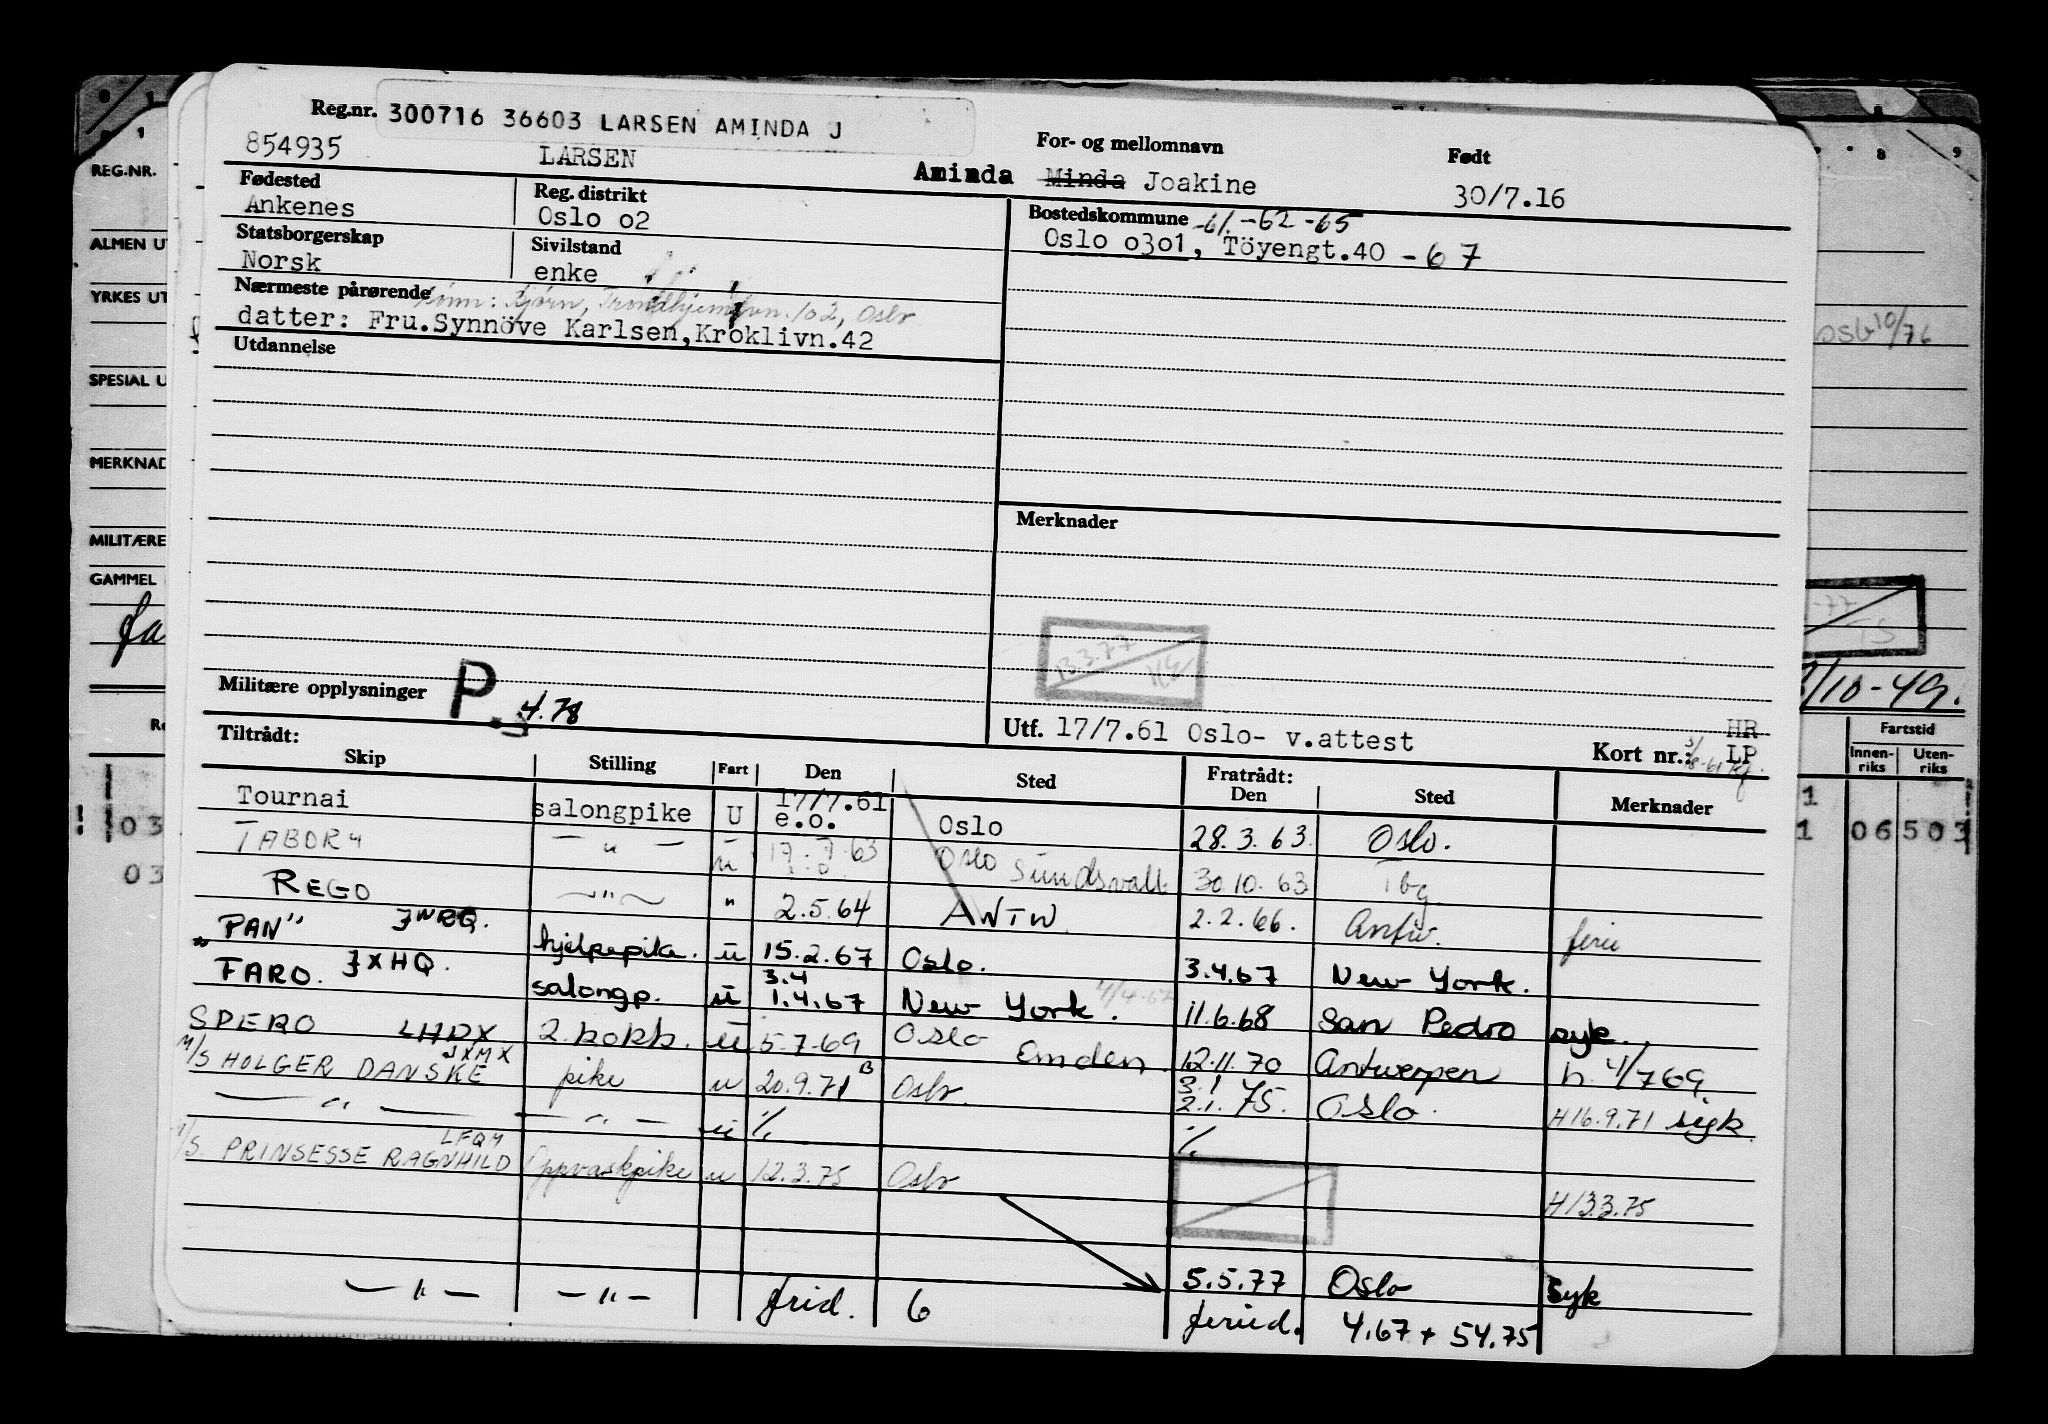 Reg.nr. 300716 36603 LARSEN AMINDA J
854935 LARSEN
For- og mellomnavn
Aminda Minda Joakine
Født
30/7.16
Fødested
Ankenes
Reg. distrikt
Oslo 02
Bostedskommune -61.-62-65
Oslo 0301, Töyengt.40 -67
Statsborgerskap
Norsk
Sivilstand
enke
Nærmeste pårørende
Bjørn, 102, Oslo
datter: Fru.Synnöve Karlsen,Kroklivn.42
Utdannelse
Merknader
13.3.77
Militære opplysninger P. 4.78
Utf. 17/7.61 Oslo- v.attest
HR
Kort nr.: LP
Tiltrådt:
Skip Stilling Fart Den Sted
Fratrådt:
Den Sted Merknader
Tournai salongpike U 17/7.61 e.o. Oslo 28.3.63. Oslo.
TABORY — " — u 17.7.63 Oslo Sundsvall 30.10.63 Tbg
REGO — " — " 2.5.64 ANTW. 2.2.66. Antw. ferie
"PAN" JWRQ. hjelpepike. u 15.2.67 Oslo. 3.4.67 New York.
FARO. JXHQ. salongp. u 3.4 1.4.67 New York. 11.6.68 San Pedro syk.
SPERO LHDX 2.kokk. u 5-7-69 Oslo Emden 12.11.70 Antwerpen h. 4/769.
M/S HOLGER DANSKE JXMX pike u 20.9.71 B Oslo. 3.1 2.1.75. Oslo. H 16.9.71 syk.
— " — — " — u % %
M/S. PRINSESSE RAGNHILD LFQY Oppvaskpike u 12.3.75 Oslo H 13.3.75
5.5.77 Oslo syk
— " — — " — frid. 6 feried. 4.67 + 54.75
REG.NR.
ALMEN UT
YRKES UT
SPESIAL U
MERKNAD
MILITÆRE
GAMMEL
03
03
1 8 9
10/76
-77
TS
/10-49.
Fartstid
Innen-
riks
Uten-
riks
1
1 06 503